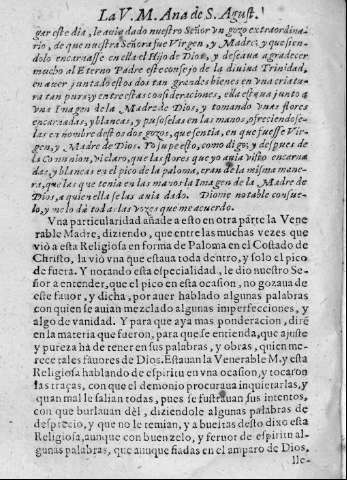 La V. M. Ana de S. Agust.
gar este dia, le auia dado nuestro Señor vn gozo extraordina-
rio, de que nuestra Señora fue Virgen, y Madre; y que sien-
dolo encarnasse en ella el Hijo de Dios, y deseaua agradecer
mucho al Eterno Padre este consejo de la diuina Trinidad,
en auer juntado estos dos tan grandes bienes en vna criatu-
ra tan pura; y entre estas consideraciones, ella estaua junto a
vna Imagen de la Madre de Dios, y tomando vnas flores
encarnadas, y blancas, y pusoselas en las manos, ofreciendose-
las en nombre destos dos gozos, que sentia, en que fuesse Vir-
gen, y Madre de Dios. Todo esto, como digo; y despues de
la Comunion, vi claro, que las flores que yo auia visto encarna-
das, y blancas en el pico de la paloma, eran de la misma mane-
ra, que las que tenia en las manos la Imagen de la Madre de
Dios, a quien ella se las auia dado. Diome notable consue-
lo, y me lo dà todas las vezes que me acuerdo.
Vna particularidad añade a esto en otra parte la Vene
rable Madre, diziendo, que entre las muchas vezes que
viò a esta Religiosa en forma de Paloma en el Costado de
Christo, la viò vna que estaua toda dentro, y solo el pico
de fuera. Y notando esta especialidad, le dio nuestro Se-
ñor a entender, que el pico en esta ocasion, no gozaua de
este fauor, y dicha, por auer hablado algunas palabras
con quien se auian mezclado algunas imperfecciones, y
algo de vanidad. Y para que aya mas ponderacion, dirè
en la materia que fueron, para que se entienda, que ajuste
y pureza hà de tener en sus palabras, y obras, quien me-
rece tales fauores de Dios. Estauan la Venerable M. y esta
Religiosa hablando de espiritu en vna ocasion, y tocaron
las traças, con que el demonio procuraua inquietarlas, y
quan mal le salian todas, pues se frustauan sus intentos,
con que burlauan dèl, diziendole algunas palabras de
desprecio, y que no le temian, y a bueltas desto dixo esta
Religiosa, aunque con buen zelo, y feruor de espiritu al-
gunas palabras, que aunque fiadas en el amparo de Dios,
lle-